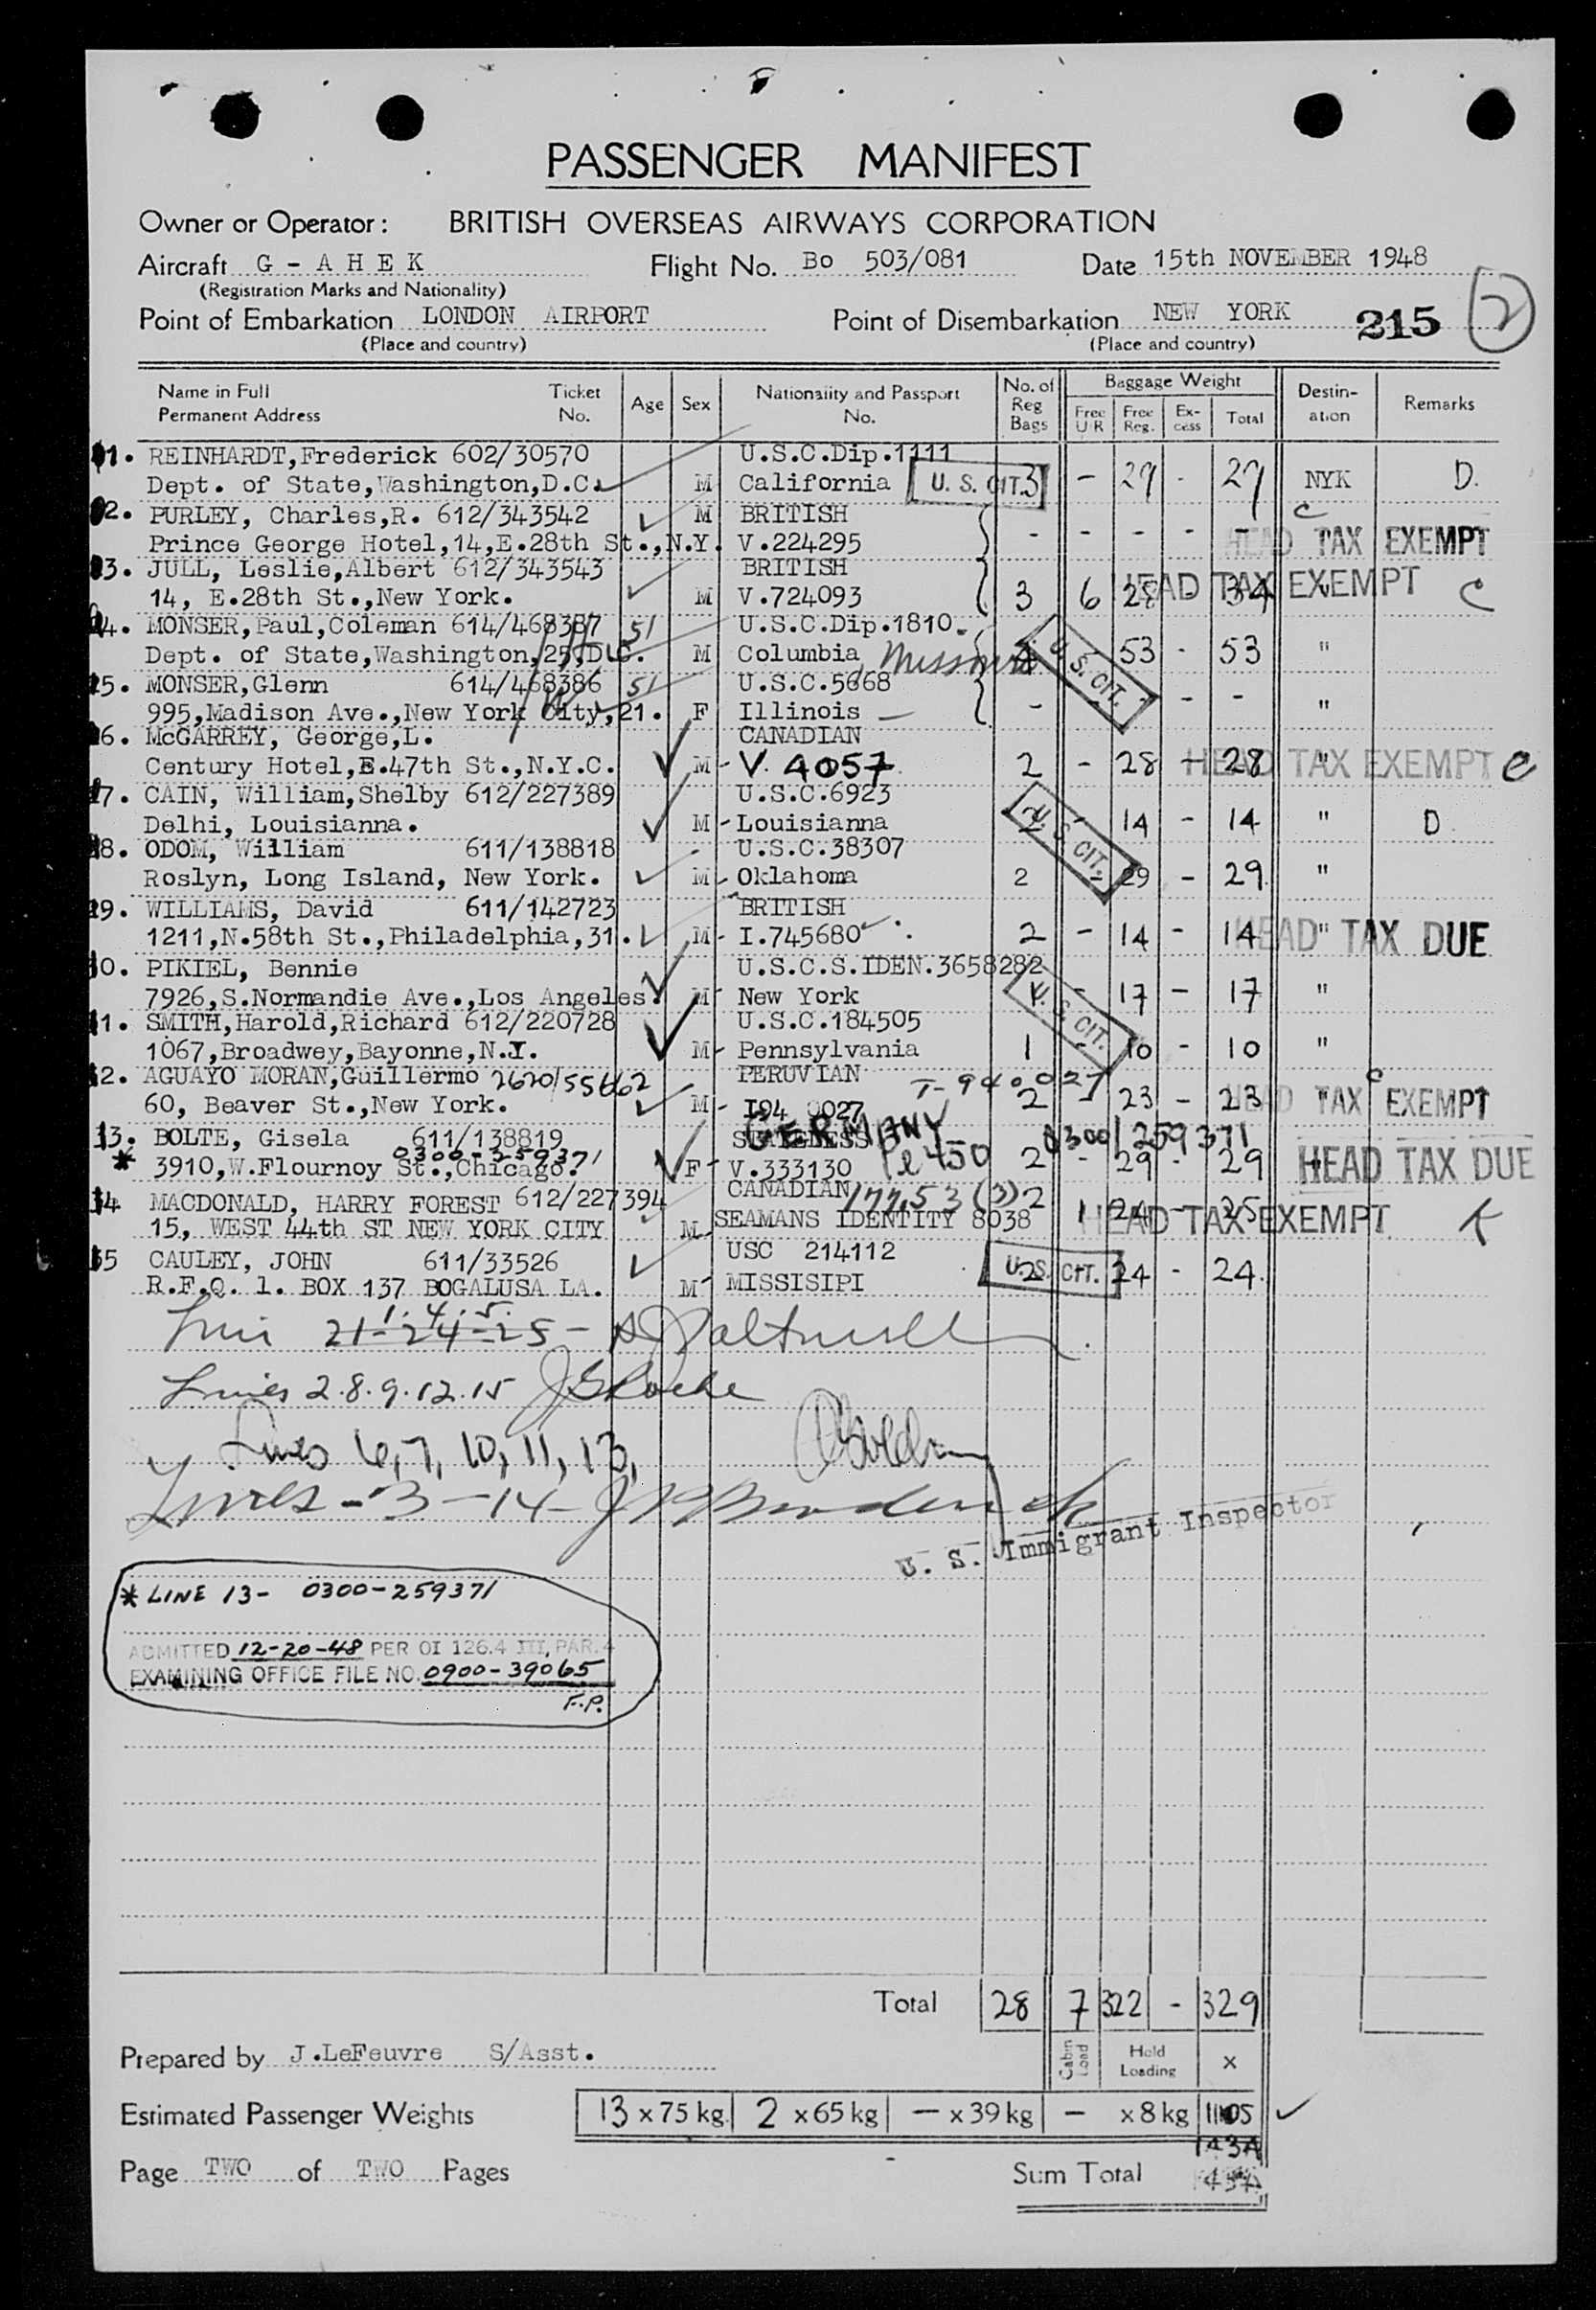 PASSENGER MANIFEST
Owner or Operator: BRITISH OVERSEAS AIRWAYS CORPORATION
Aircraft G - A H E K Flight No. Bo 503/081 Date 15th NOVEMBER 1948
(Registration Marks and Nationality)
Point of Embarkation LONDON AIRPORT Point of Disembarkation NEW YORK 215 2
(Place and country) (Place and country)
Name in Full Ticket Age Sex Nationality and Passport No. of Baggage Weight Destin- Remarks
Permanent Address No. No. Reg Bags Free U/R Free Reg. Ex-cess Total ation
1. REINHARDT,Frederick 602/30570 U.S.C.Dip.1111
Dept. of State,Washington,D.C. M California U. S. CIT. 3 - 29 - 29 NYK D.
2. PURLEY, Charles,R. 612/343542 M BRITISH C
Prince George Hotel,14,E.28th St.,N.Y. V.224295 - - - - - HEAD TAX EXEMPT
3. JULL, Leslie,Albert 612/343543 BRITISH
14, E.28th St.,New York. M V.724093 3 6 28 - 34 " HEAD TAX EXEMPT C
4. MONSER,Paul,Coleman 614/468387 51 U.S.C.Dip.1810.
Dept. of State,Washington,25,D.C. M Columbia, Missouri U. S. CIT. 53 - 53 "
5. MONSER,Glenn 614/468386 51 U.S.C.5668
995,Madison Ave.,New York City,21. F Illinois - - - "
6. McGARREY, George,L. CANADIAN
Century Hotel,E.47th St.,N.Y.C. M - V. 4057 2 - 28 - 28 " HEAD TAX EXEMPT C
7. CAIN, William,Shelby 612/227389 U.S.C.6923
Delhi, Louisianna. M - Louisianna 2 U. S. CIT. 14 - 14 " D
8. ODOM, William 611/138818 U.S.C.38307
Roslyn, Long Island, New York. M - Oklahoma 2 - 29 - 29 "
9. WILLIAMS, David 611/142723 BRITISH
1211,N.58th St.,Philadelphia,31. M - I.745680 2 - 14 - 14 " HEAD TAX DUE
10. PIKIEL, Bennie U.S.C.S.IDEN.3658282
7926,S.Normandie Ave.,Los Angeles. M - New York U. S. CIT. - 17 - 17 "
11. SMITH,Harold,Richard 612/220728 U.S.C.184505
1067,Broadwey,Bayonne,N.J. M - Pennsylvania 1 - 10 - 10 "
12. AGUAYO MORAN,Guillermo 2620/55662 PERUVIAN T-940027 C
60, Beaver St.,New York. M - I94 0027 2 - 23 - 23 HEAD TAX EXEMPT
13. BOLTE, Gisela 611/138819 STATELESS GERMANY 0300/259371
0300-259371
* 3910,W.Flournoy St.,Chicago. F - V.333130 2 - 29 - 29 HEAD TAX DUE
14 MACDONALD, HARRY FOREST 612/227394 CANADIAN 177,53 (3)
15, WEST 44th ST NEW YORK CITY M SEAMANS IDENTITY 8038 2 1 24 - 25 HEAD TAX EXEMPT
15 CAULEY, JOHN 611/33526 USC 214112
R.F.Q. 1. BOX 137 BOGALUSA LA. M - MISSISIPI 2 U. S. CIT. 24 - 24.
1. 4. 5.
21-24-25 -
Lines 2.8.9.12.15
Lines 6, 7, 10, 11, 13,
Lines - 3 - 14 -
U. S. Immigrant Inspector
* LINE 13- 0300-259371
ADMITTED 12-20-48 PER OI 126.4 III, PAR. 4
EXAMINING OFFICE FILE NO. 0900-39065
F.P.
Total 28 7 322 - 329
Prepared by J.LeFeuvre S/Asst. Cabin Load Hold Loading x
Estimated Passenger Weights 13 x 75 kg. 2 x 65 kg - x 39 kg - x 8 kg 1105
1434
Page TWO of TWO Pages Sum Total 1434